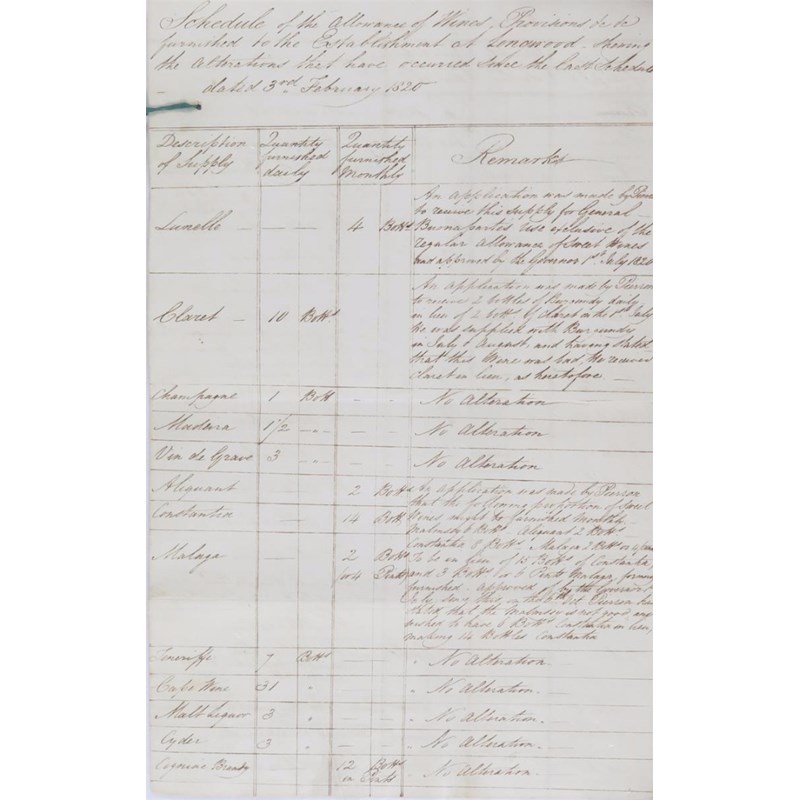 Schedule of the Allowance of Wines, Provisions &c &c
furnished to the Establishment at Longwood, shewing
the alterations that have occurred since the last Schedule
— dated 3rd February 1820
Description of Supply
Quantity furnished daily
Quantity furnished Monthly
Remarks
Lunelle — — — 4 Botts
An application was made by Pierron
to receive this supply for General
Buonaparte's use exclusive of the
regular allowance of Sweet Wines
and approved by the Governor 1st July 1820
Claret — 10 Botts
An application was made by Pierron
to receive 2 bottles of Burgundy daily
in lieu of 2 bott. of claret on the 1st July
he was supplied with Burgundy
in July & August, and having stated
that this Wine was bad, he receives
claret in lieu, as heretofore —
Champagne 1 Bott — — No Alteration
Madeira 1 1/2 — — No Alteration
Vin de Grave 3 — — No Alteration
Aliquant — 2 Botts
Constantia — 14 Bott,
Malaga — 2 Botts
or 4 Pints
An application was made by Pierron
that the following proportion of Sweet
Wines might be furnished Monthly
Malmsey 6 Botts Aliquant 2 Botts
Constantia 8 Botts Malaga 2 Botts or 4 pints
To be in lieu of 15 Botts of Constantia
and 3 Botts or 6 Pints Malaga, formerly
furnished. Approved by the Governor
July, since this on the Pierron has
stated that the Malmsey is not good, and
wished to have 6 Botts Constantia in lieu,
making 14 Bottles Constantia
Teneriffe 7 Botts — — No Alteration.
Cape Wine 31 " — — No Alteration. —
Malt Liquor 3 " — — No Alteration. —
Cyder 3 " — — No Alteration. —
Cogniac Brandy 12 Botts in Pints No Alteration.